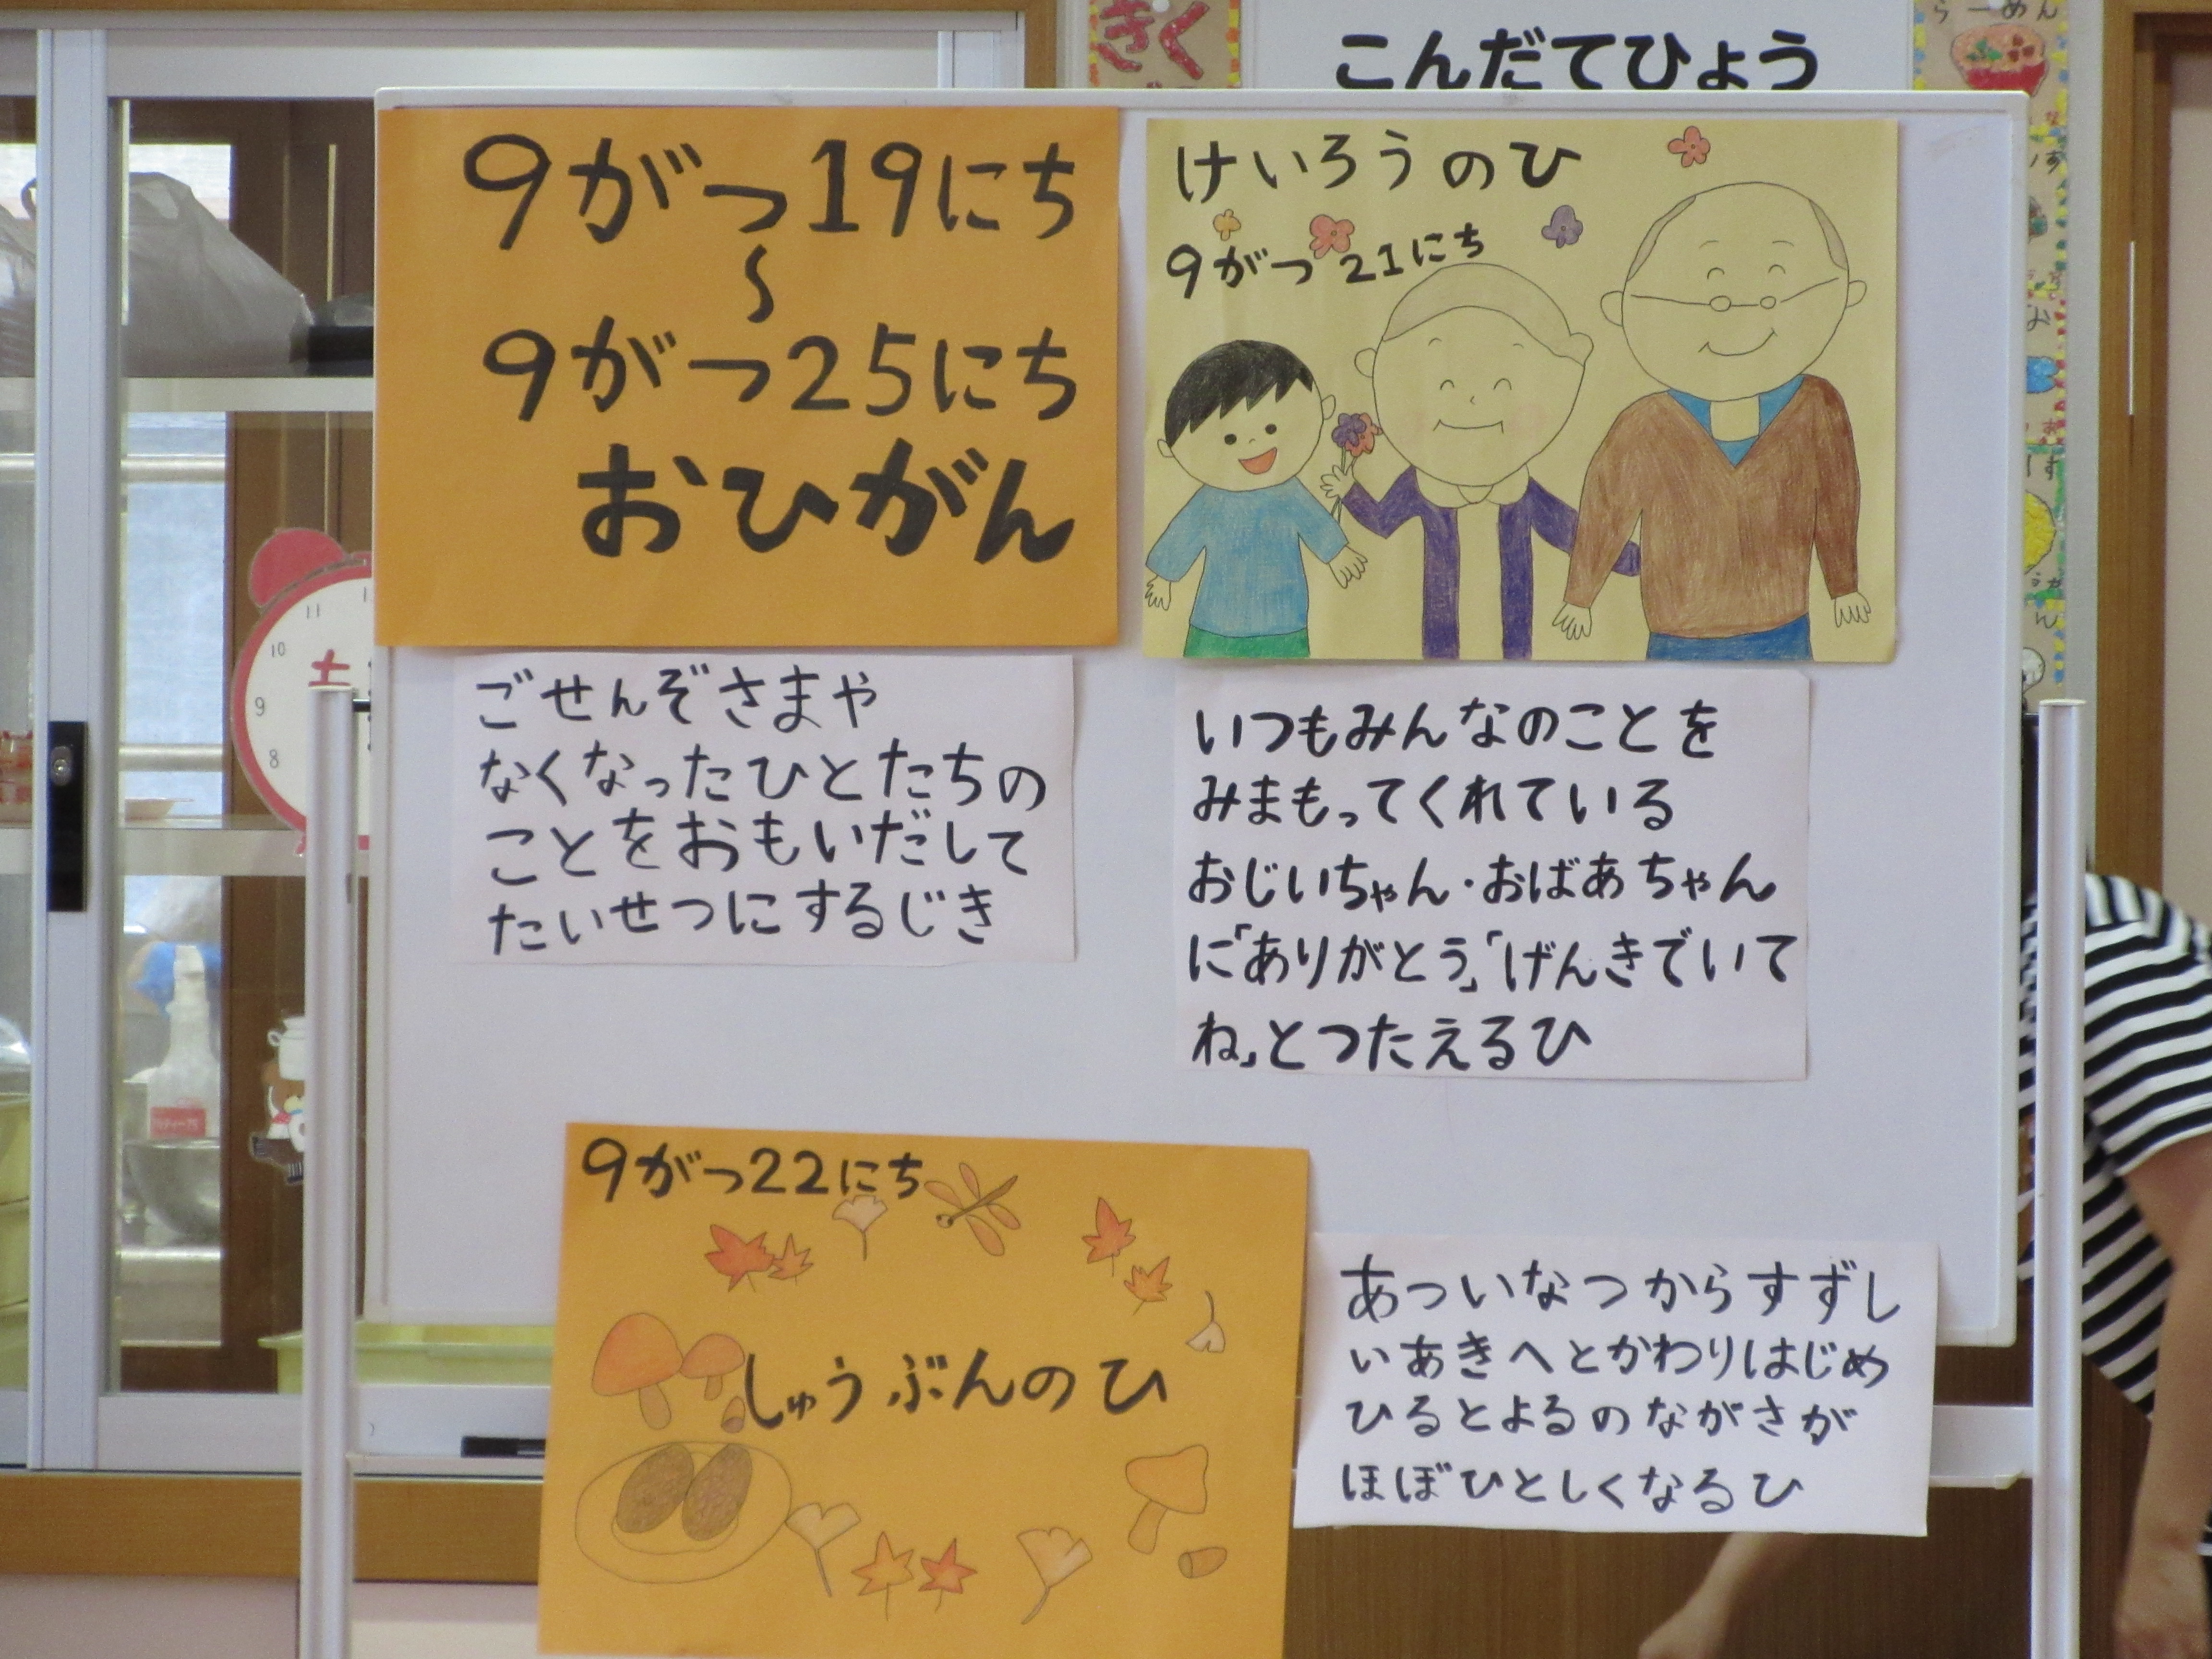 きく
こんだてひょう
らーめん
9がつ19にち
〜
9がつ25にち
おひがん
けいろうのひ
9がつ21にち
ごせんぞさまや
なくなったひとたちの
ことをおもいだして
たいせつにするじき
いつもみんなのことを
みまもってくれている
おじいちゃん・おばあちゃん
に「ありがとう」「げんきでいて
ね」とつたえるひ
11
10
9
8
土
9がつ22にち
しゅうぶんのひ
あついなつからすずし
いあきへとかわりはじめ
ひるとよるのながさが
ほぼひとしくなるひ